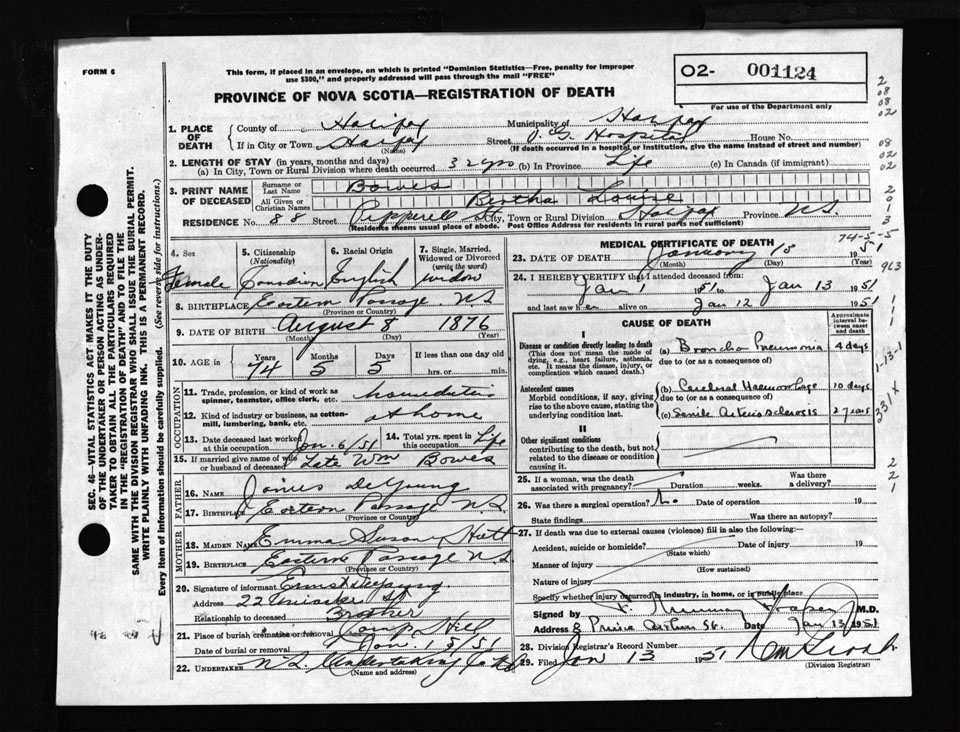 FORM 6
This form, if placed in an envelope, on which is printed "Dominion Statistics—Free, penalty for improper
use $300," and properly addressed will pass through the mail "FREE"
02- 001124
For use of the Department only
PROVINCE OF NOVA SCOTIA—REGISTRATION OF DEATH
SEC. 46—VITAL STATISTICS ACT MAKES IT THE DUTY
OF THE UNDERTAKER OR PERSON ACTING AS UNDER-
TAKER TO OBTAIN ALL THE PARTICULARS REQUIRED
IN THE "REGISTRATION OF DEATH" AND TO FILE THE
SAME WITH THE DIVISION REGISTRAR WHO SHALL ISSUE THE BURIAL PERMIT.
WRITE PLAINLY WITH UNFADING INK. THIS IS A PERMANENT RECORD.
Every item of Information should be carefully supplied. (See reverse side for instructions.)
1. PLACE OF DEATH County of Halifax Municipality of Halifax
If in City or Town Halifax (Name) Street V. G. Hospital House No.
(If death occurred in a hospital or institution, give the name instead of street and number)
2. LENGTH OF STAY (in years, months and days)
(a) In City, Town or Rural Division where death occurred 32 yrs (b) In Province Life (c) In Canada (if immigrant)
3. PRINT NAME OF DECEASED Surname or Last Name Bowes
All Given or Christian Names Bertha Louise
RESIDENCE No. 88 Street Pepperell St City, Town or Rural Division Halifax Province N.S.
(Residence means usual place of abode. Post Office Address for residents in rural parts not sufficient)
4. Sex 5. Citizenship (Nationality) 6. Racial Origin 7. Single, Married, Widowed or Divorced (write the word)
Female Canadian English widow
8. BIRTHPLACE Eastern Passage N.S.
(Province or Country)
9. DATE OF BIRTH August 8 1876
(Month) (Day) (Year)
10. AGE in Years Months Days If less than one day old
74 5 5 hrs. or min.
OCCUPATION
11. Trade, profession, or kind of work as spinner, teamster, office clerk, etc. house duties
12. Kind of industry or business, as cotton-mill, lumbering, bank, etc. at home
13. Date deceased last worked at this occupation Jan. 6/51 14. Total yrs. spent in this occupation Life
15. If married give name of wife or husband of deceased Late Wm Bowes
FATHER
16. NAME James DeYoung
17. BIRTHPLACE Eastern Passage N.S.
(Province or Country)
MOTHER
18. MAIDEN NAME Emma Susan Hiltz
19. BIRTHPLACE Eastern Passage N.S.
(Province or Country)
20. Signature of informant Ernest DeYoung
Address 22 St
Relationship to deceased Brother
21. Place of burial cremation or removal Camp Hill
Date of burial or removal Jan. 15/51
22. UNDERTAKER N.S. Undertaking Co Ltd
(Name and address)
MEDICAL CERTIFICATE OF DEATH
74-5-5
23. DATE OF DEATH January 13 51
(Month) (Day) (Year)
24. I HEREBY CERTIFY that I attended deceased from:
Jan 1 1951 to Jan 13 1951
and last saw her alive on Jan 12 1951
CAUSE OF DEATH
Approximate interval between onset and death
I
Disease or condition directly leading to death (a) Broncho Pneumonia 4 days
(This does not mean the mode of dying, e.g., heart failure, asthenia, etc. It means the disease, injury, or complication which caused death.) due to (or as a consequence of)
Antecedent causes (b) Cerebral Haemorrhage 10 days
Morbid conditions, if any, giving rise to the above cause, stating the underlying condition last. due to (or as a consequence of)
(c) Senile Arteriosclerosis 2 years
II
Other significant conditions
contributing to the death, but not related to the disease or condition causing it.
25. If a woman, was the death associated with pregnancy? Duration weeks. Was there a delivery?
26. Was there a surgical operation? No Date of operation 19
State findings Was there an autopsy?
27. If death was due to external causes (violence) fill in also the following:—
Accident, suicide or homicide? Date of injury 19
(State which)
Manner of injury
(How sustained)
Nature of injury
Specify whether injury occurred in industry, in home, or in public place
Signed by F. Murray Fraser M.D.
Address 8 Prince Arthur St. Date Jan 13 1951
28. Division Registrar's Record Number
29. Filed Jan 13 1951
(Division Registrar)
2
08
08
02
08
02
02
2
0
1
3
963
1
1
1
1-13-1
331X
2
2
1